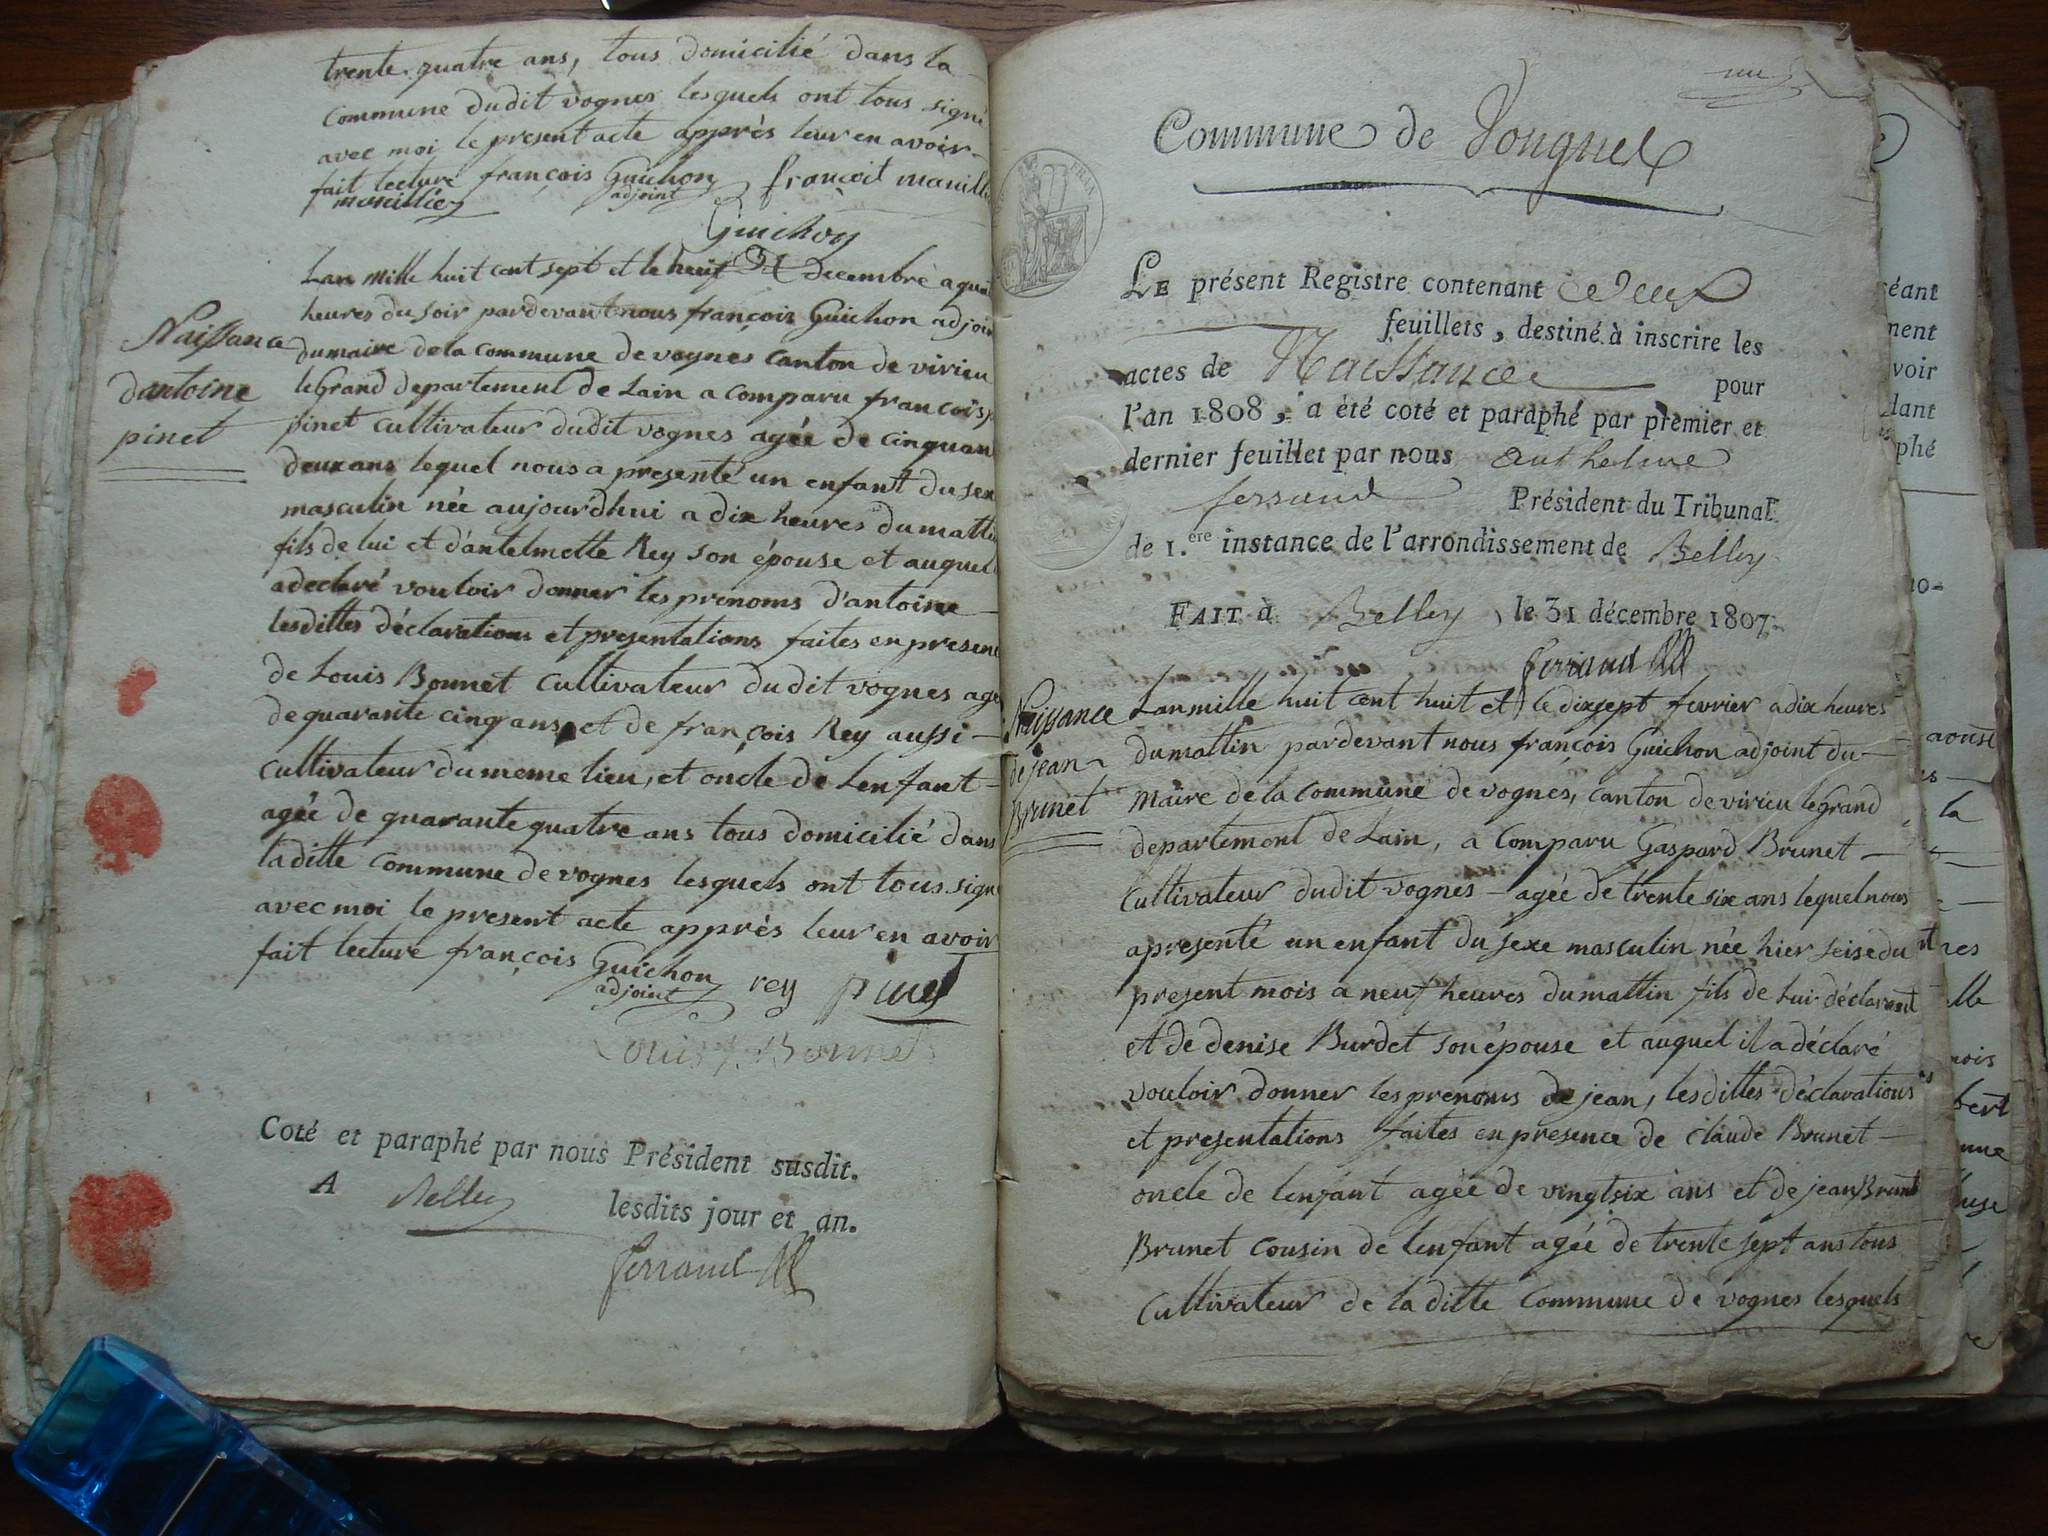 trente quatre ans, tous domicilié dans la
commune dudit vognes lesquels ont tous signé
avec moi le present acte apprès leur en avoir
fait lecture françois Guichon françoit
adjoint
Guichon
Lan mille huit cent sept et le neuf Decembre a
heures du soir pardevant nous françois Guichon adjoin
Naissance
dumaire dela commune de vognes canton de virieu
leGrand departement de Lain a comparu francois
dantoine
pinet cultivateur dudit vognes agée de cinquan
pinet
deux ans lequel nous a presenté un enfant du sex
masculin née aujourdhui a dix heures dumatti
fils de lui et d'antelmette Rey son épouse et auquel
a declaré vouloir donner les prenoms d'antoine
lesdittes déclarations et presentations faites en presenc
de Louis Bonnet cultivateur dudit vognes age
de quarante cinq ans et de françois Rey aussi
cultivateur du meme lieu, et oncle de Lenfant
agée de quarante quatre ans tous domicilié dans
laditte commune de vognes lesquels ont tous signé
avec moi le present acte apprès leur en avoir
fait lecture françois Guichon rey pinet
adjoint
Louis Bonnet
Coté et paraphé par nous Président susdit.
A Belley lesdits jour et an.
ferrand
Commune de Vougnes
LE présent Registre contenant deux
feuillets, destiné à inscrire les
actes de Naissance pour
l'an 1808, a été coté et paraphé par premier et
dernier feuillet par nous anthelme
ferrand Président du Tribunal
de 1.ere instance de l'arrondissement de Belley
FAIT à Belley, le 31 décembre 1807.
ferrand
Naissance
de jean
Brunet
Lan mille huit cent huit et le dixsept fevrier a dix heures
dumattin pardevant nous françois Guichon adjoint du
Maire de la commune de vognes, canton de virieu leGrand
departement de Lain, a comparu Gaspard Brunet
cultivateur dudit vognes agée de trente six ans lequel nous
a presenté un enfant du sexe masculin née hier seise du
present mois a neuf heures dumattin fils de lui déclarant
et de denise Burdet son épouse et auquel il a déclaré
vouloir donner les prenoms de jean, lesdittes déclarations
et presentations faites en presence de claude Brunet
oncle de lenfant agée de vingtsix ans et de jean Brunet
Brunet cousin de lenfant agée de trente sept ans tous
cultivateur de la ditte commune de vognes lesquels
éant
ment
voir
dant
phé
la